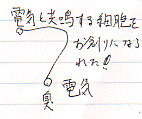 電気と共鳴する細胞を
お創りになら
れた!!
臭 電気